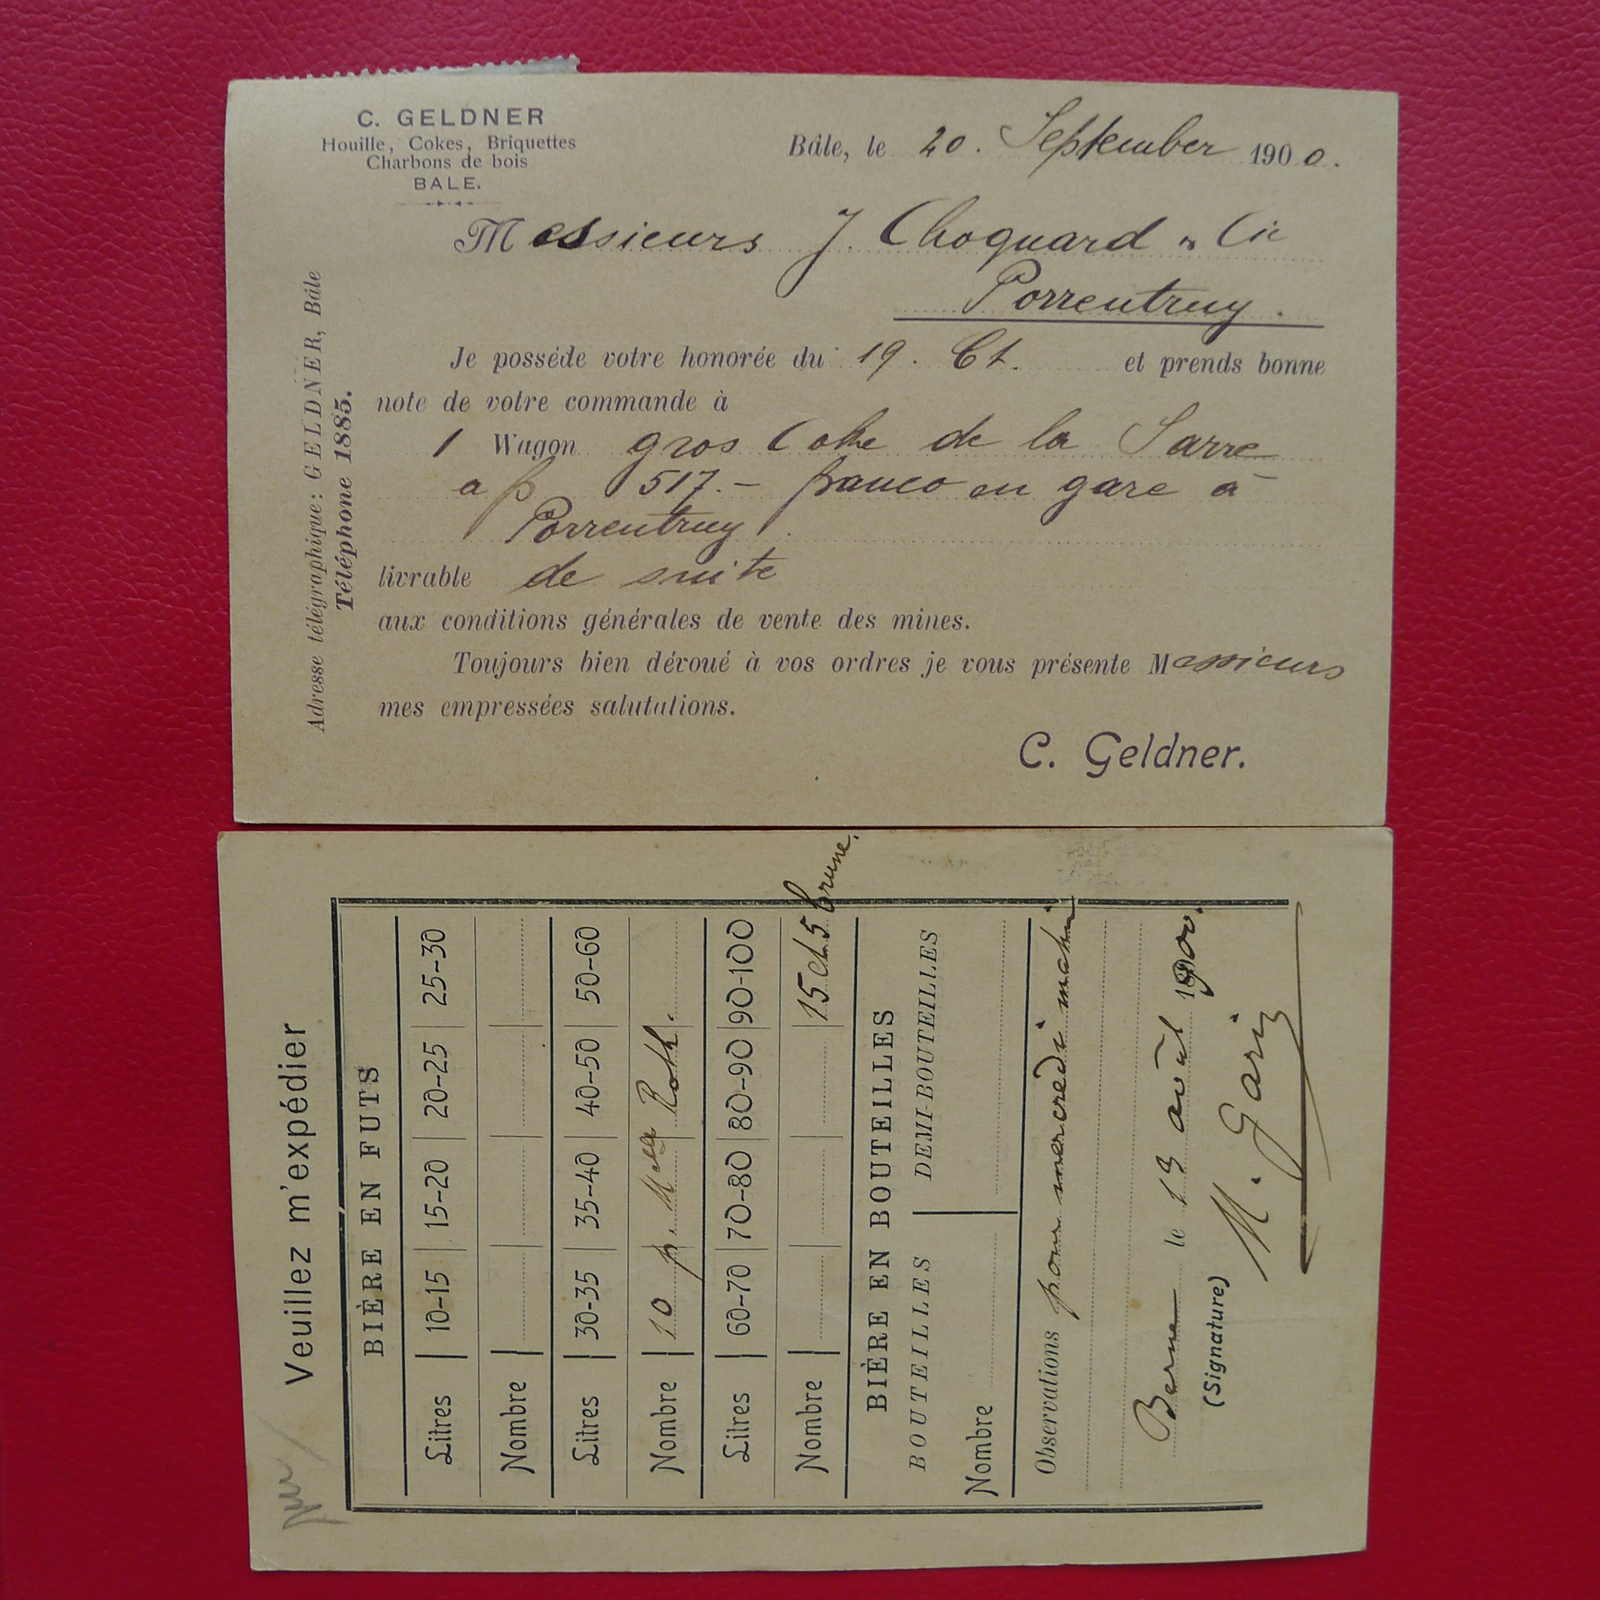 C. GELDNER
Houille, Cokes, Briquettes
Charbons de bois
BALE.
Bâle, le 20. September 1900.
Messieurs J. Choquard & Cie
Porrentruy.
Adresse télégraphique: GELDNER, Bâle
Téléphone 1885.
Je possède votre honorée du 19. Ct. et prends bonne
note de votre commande à
1 Wagon gros Coke de la Sarre
a 517.- franco en gare à
Porrentruy.
livrable de suite
aux conditions générales de vente des mines.
Toujours bien dévoué à vos ordres je vous présente Messieurs
mes empressées salutations.
C. Geldner.
Veuillez m'expédier
BIÈRE EN FUTS
Litres 10-15 15-20 20-25 25-30
Nombre
Litres 30-35 35-40 40-50 50-60
Nombre 10 p. Roth.
Litres 60-70 70-80 80-90 90-100
Nombre 15 et 5 brune.
BIÈRE EN BOUTEILLES
BOUTEILLES DEMI-BOUTEILLES
Nombre
Observations pour mercredi matin
Berne le 13 août 1900.
(Signature) M. Gariz